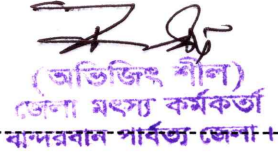 (অভিজিৎ শীল)
জেলা মৎস্য কর্মকর্তা
বান্দরবান পার্বত্য জেলা।